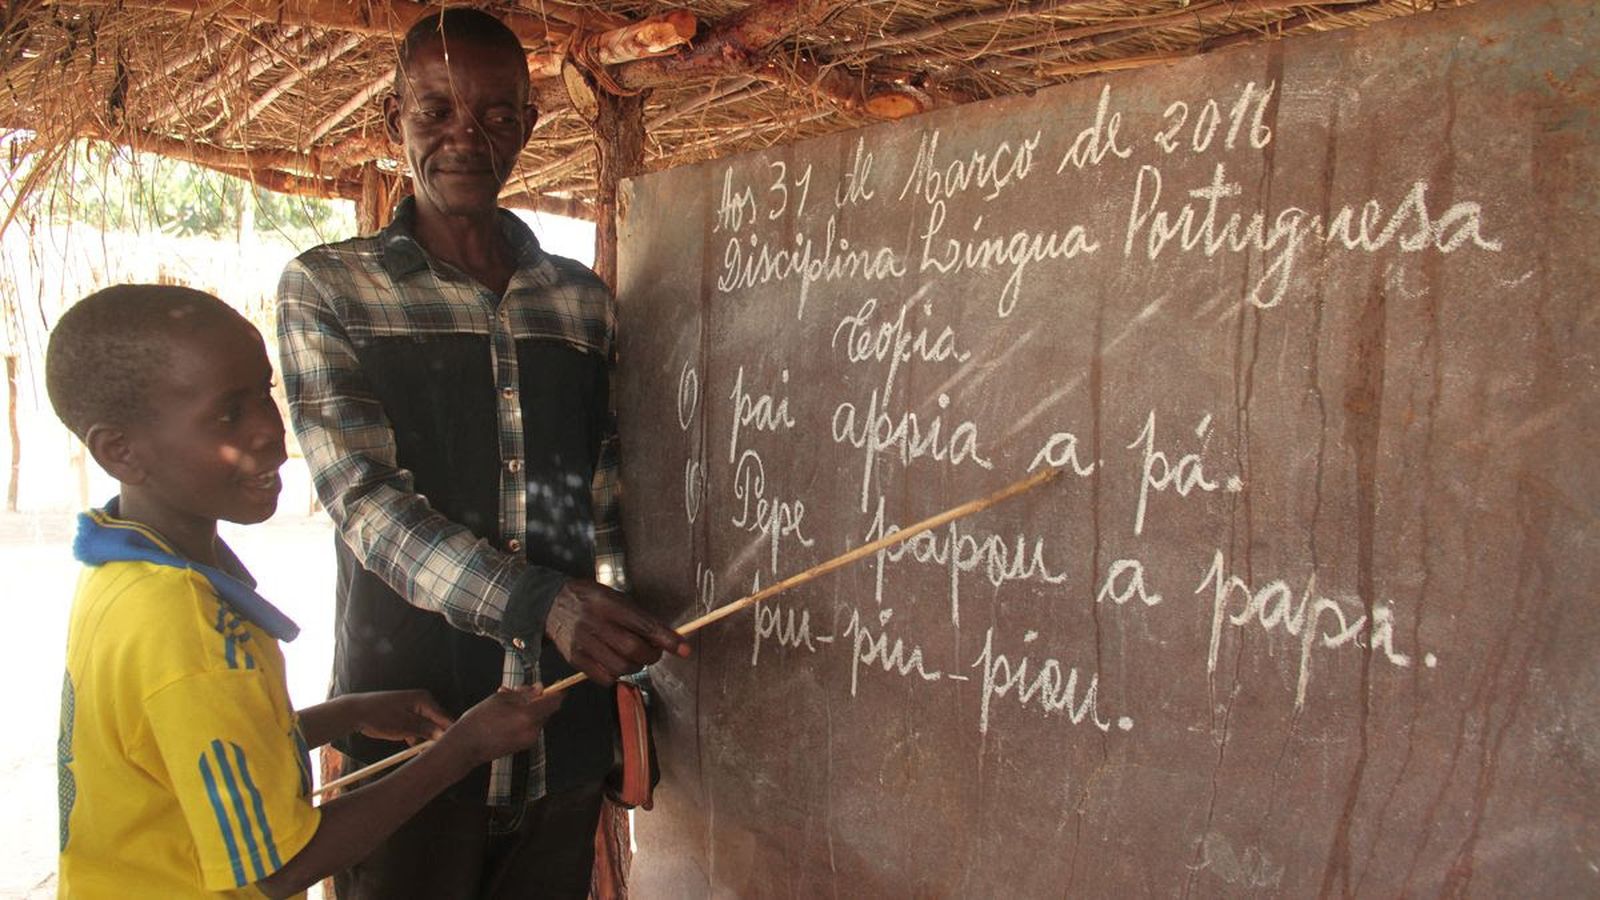 Aos 31 de Março de 2016
Disciplina Língua Portuguesa
Cópia
O pai apoia a pá.
O Pepe papou a papa.
O piu-piu-piou.